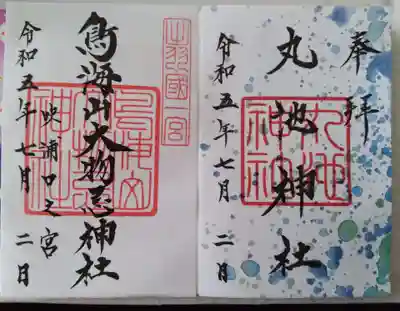 奉拝
丸池神社
令和五年七月二日
出羽國一宮
鳥海山大物忌神社
吹浦口之宮
令和五年七月二日
丸池神社